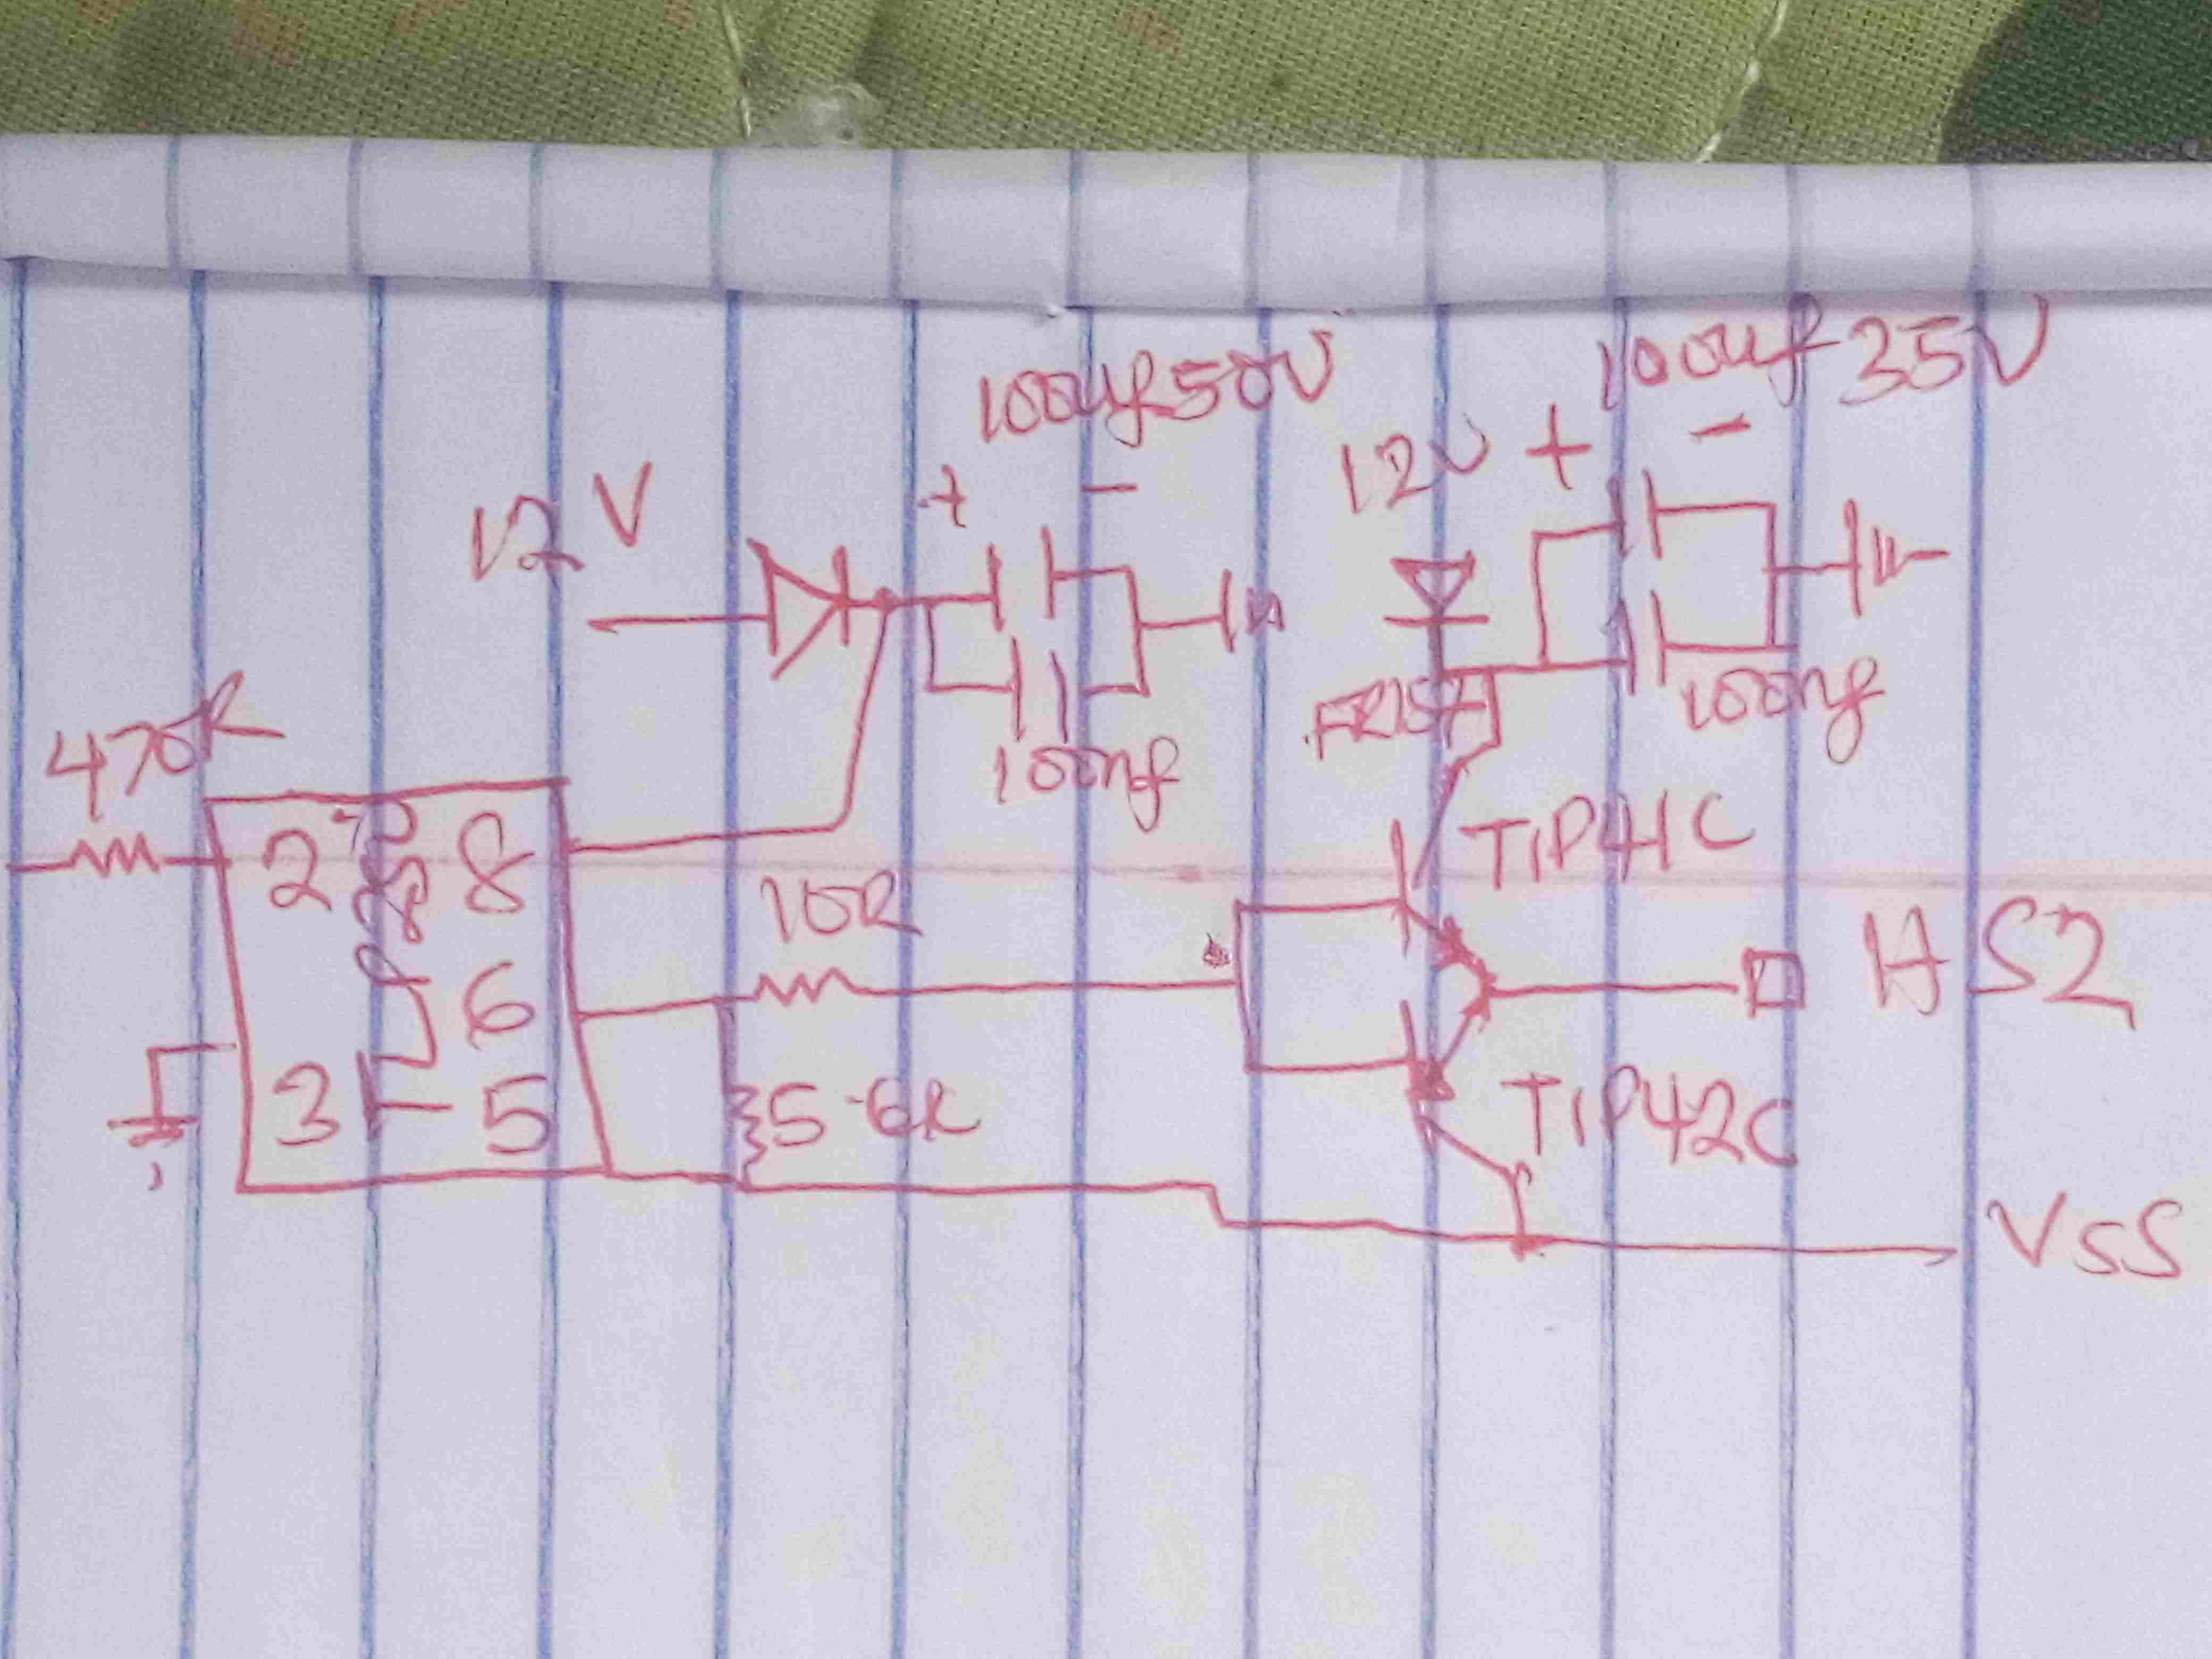 100uf 35V
100uf 50V
12V + -
12V
+ -
FR157
100nf
470R
100nf
2 8
TIP41C
10R
HS2
6
3 5
5.6K
TIP42C
VSS